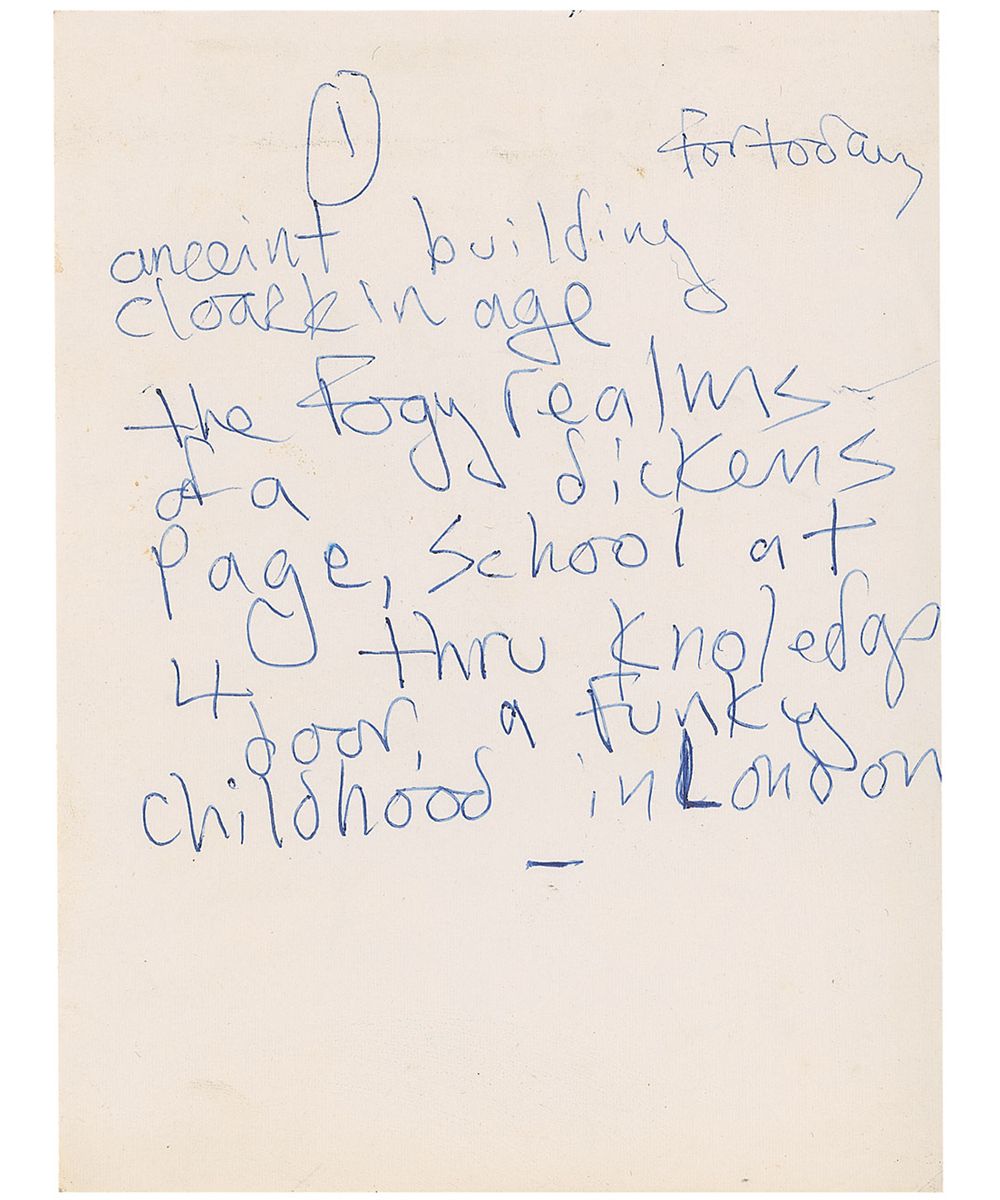 1
for today
anceint building
cloakk in age
the fogy realms
of a dickens
Page, School at
4 thru knoledge
door, a funky
childhood in London